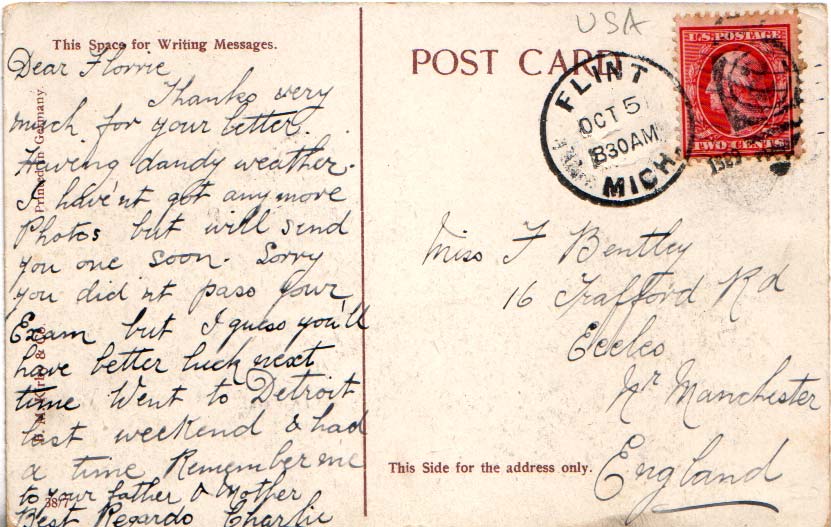 This Space for Writing Messages.
Dear Florrie
Thanks very
much for your letter.
Having dandy weather.
I have'nt got any more
Photos but will send
you one soon. Sorry
you did nt pass your
Exam but I guess you'll
have better luck next
time Went to Detroit
last weekend & had
a time Remember me
to your father & Mother
Best Regards Charlie
Printed in Germany
& Co.
38/7
POST CARD
USA
FLINT
OCT 5
830AM
MICH.
U.S. POSTAGE
TWO CENTS
Miss F Bentley
16 Trafford Rd
Eccles
Nr Manchester
England
This Side for the address only.